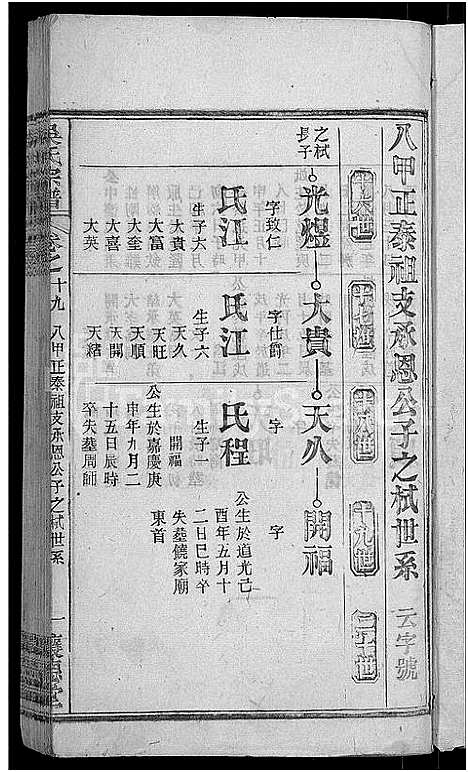 八甲正泰祖支承恩公子之栻世系 云字號
十六世
十七世
十八世
十九世
二十世
之栻
長子
光煜
大貴
天久
開福
字致仁
氏江
生子六
大貴
大富
大奎
大喜
大英
字仕爵
氏江
生子六
天久
天旺
天順
天開
天緒
字
氏程
生子一
開福
公生於嘉慶庚
申年九月二
十五日辰時
卒失墓周師
字
公生於道光己
酉年五月十
二日巳時卒
失墓饒家廟
東首
吳氏宗譜
卷之十九 八甲正泰祖支承恩公子之栻世系 一